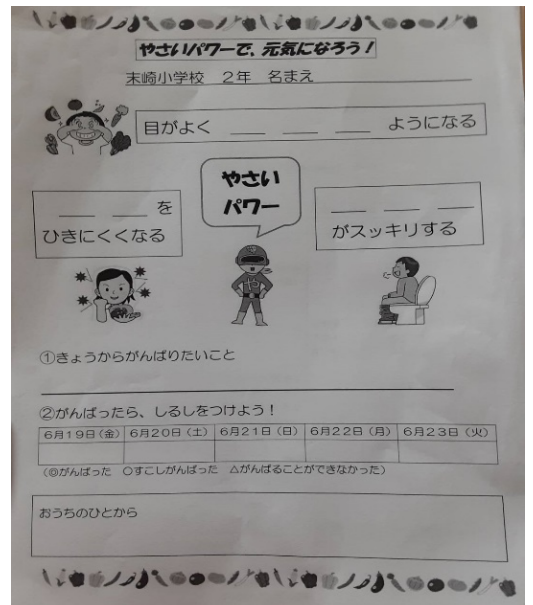 やさいパワーで、元気になろう！
末崎小学校　２年　名まえ
目がよく ＿ ＿ ＿ ようになる
やさい
パワー
＿ ＿ を
ひきにくくなる
＿ ＿ ＿
がスッキリする
①きょうからがんばりたいこと
②がんばったら、しるしをつけよう！
6月19日（金） 6月20日（土） 6月21日（日） 6月22日（月） 6月23日（火）
（◎がんばった　○すこしがんばった　△がんばることができなかった）
おうちのひとから